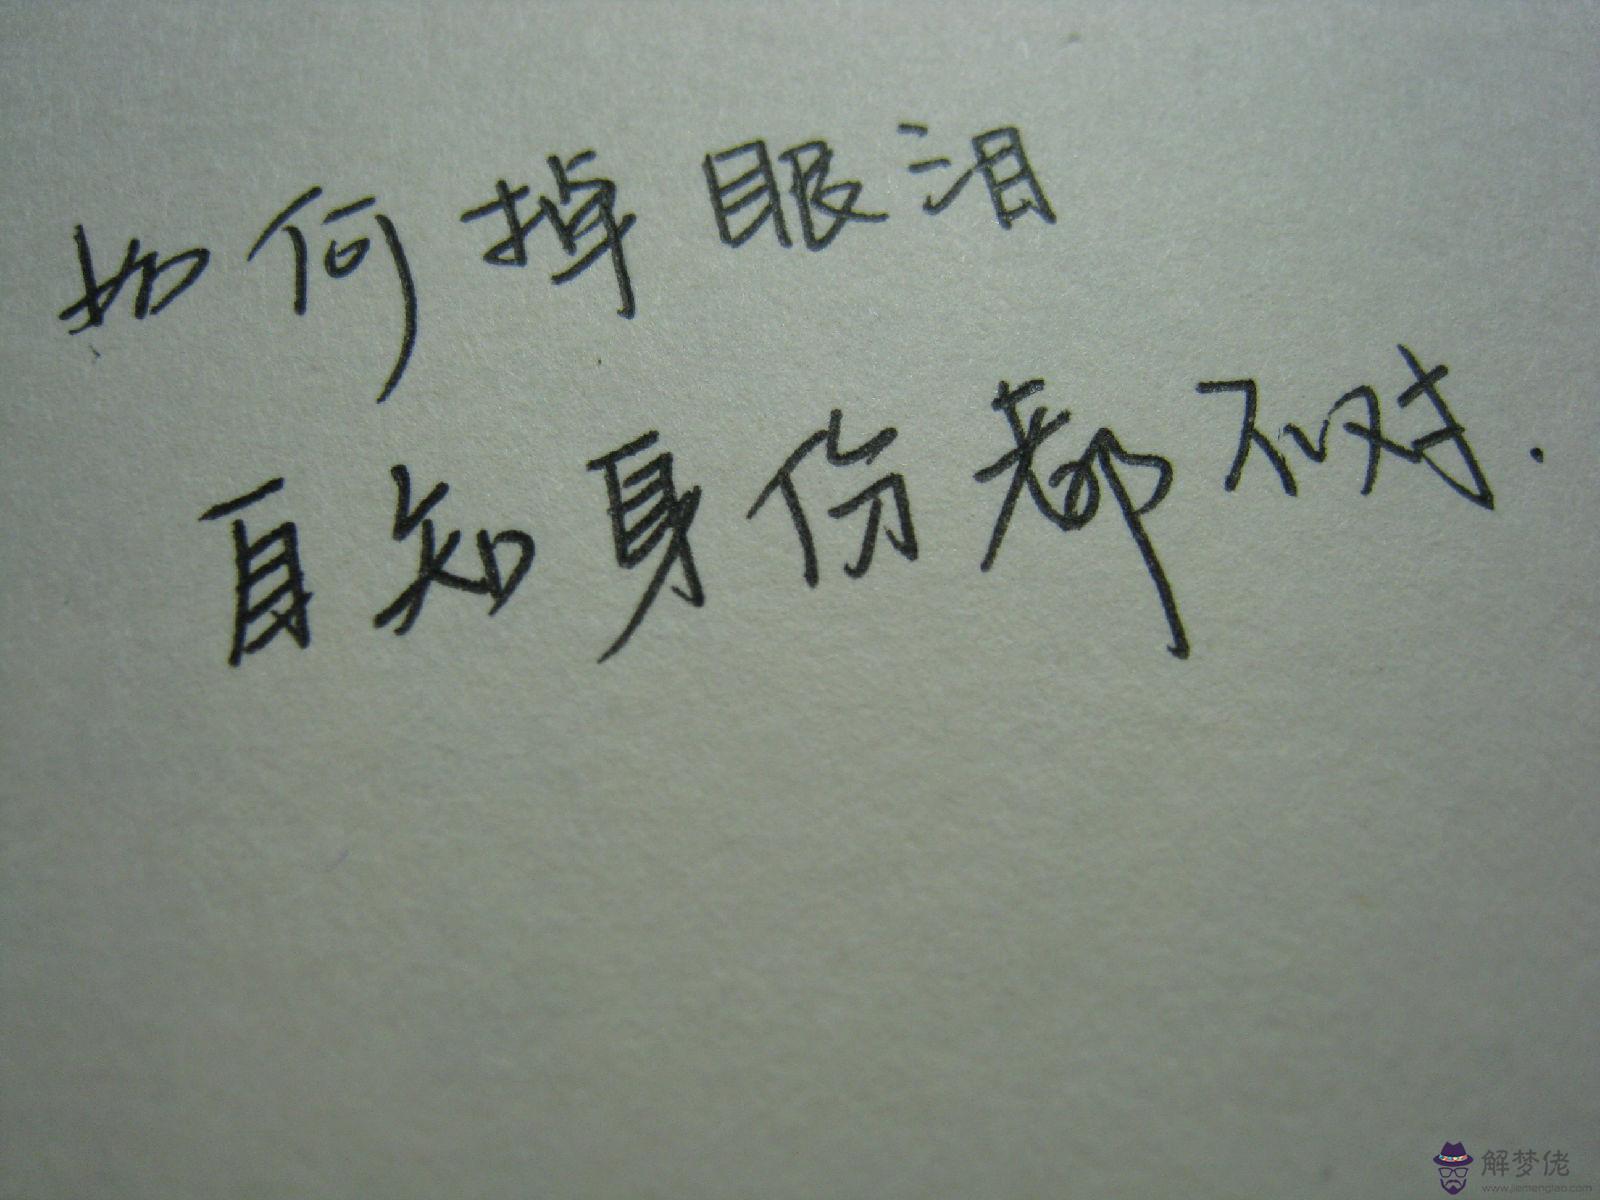 如何掉眼泪
自知身份都不对.
解梦佬
www.jiemenglao.com